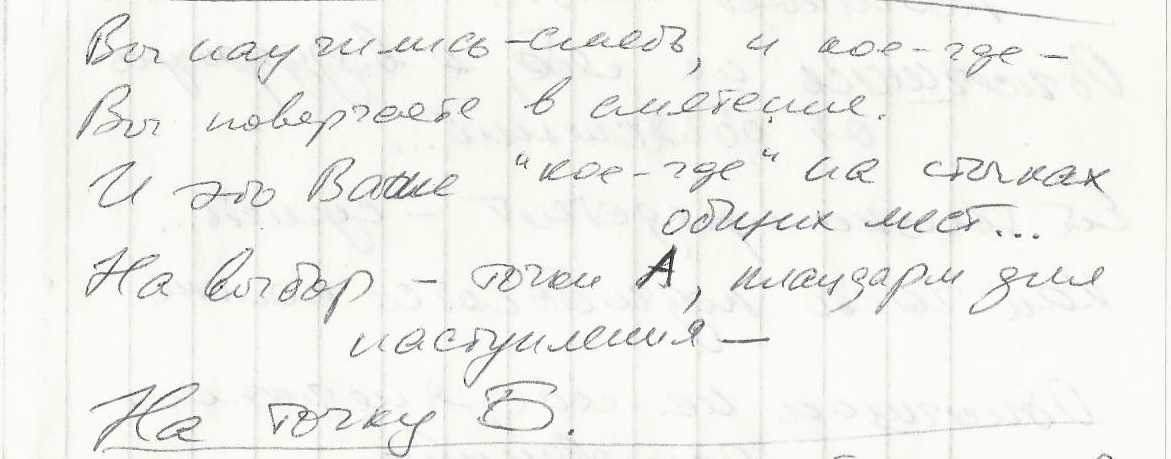 Вы научились – сметь, и кое-где –
Вы повергаете в смятение.
И это Ваше "кое-где" на стыках
общих мест...
На выбор – точки А, плацдарм для
наступления –
На точку Б.